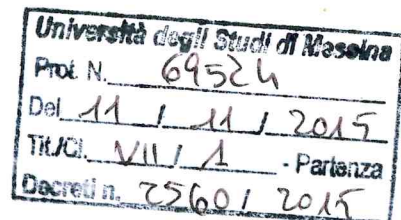 Università degli Studi di Messina
Prot. N. 69524
Del 11 / 11 / 2015
Tit./Cl. VII / 1 - Partenza
Decreti n. 2560 / 2015